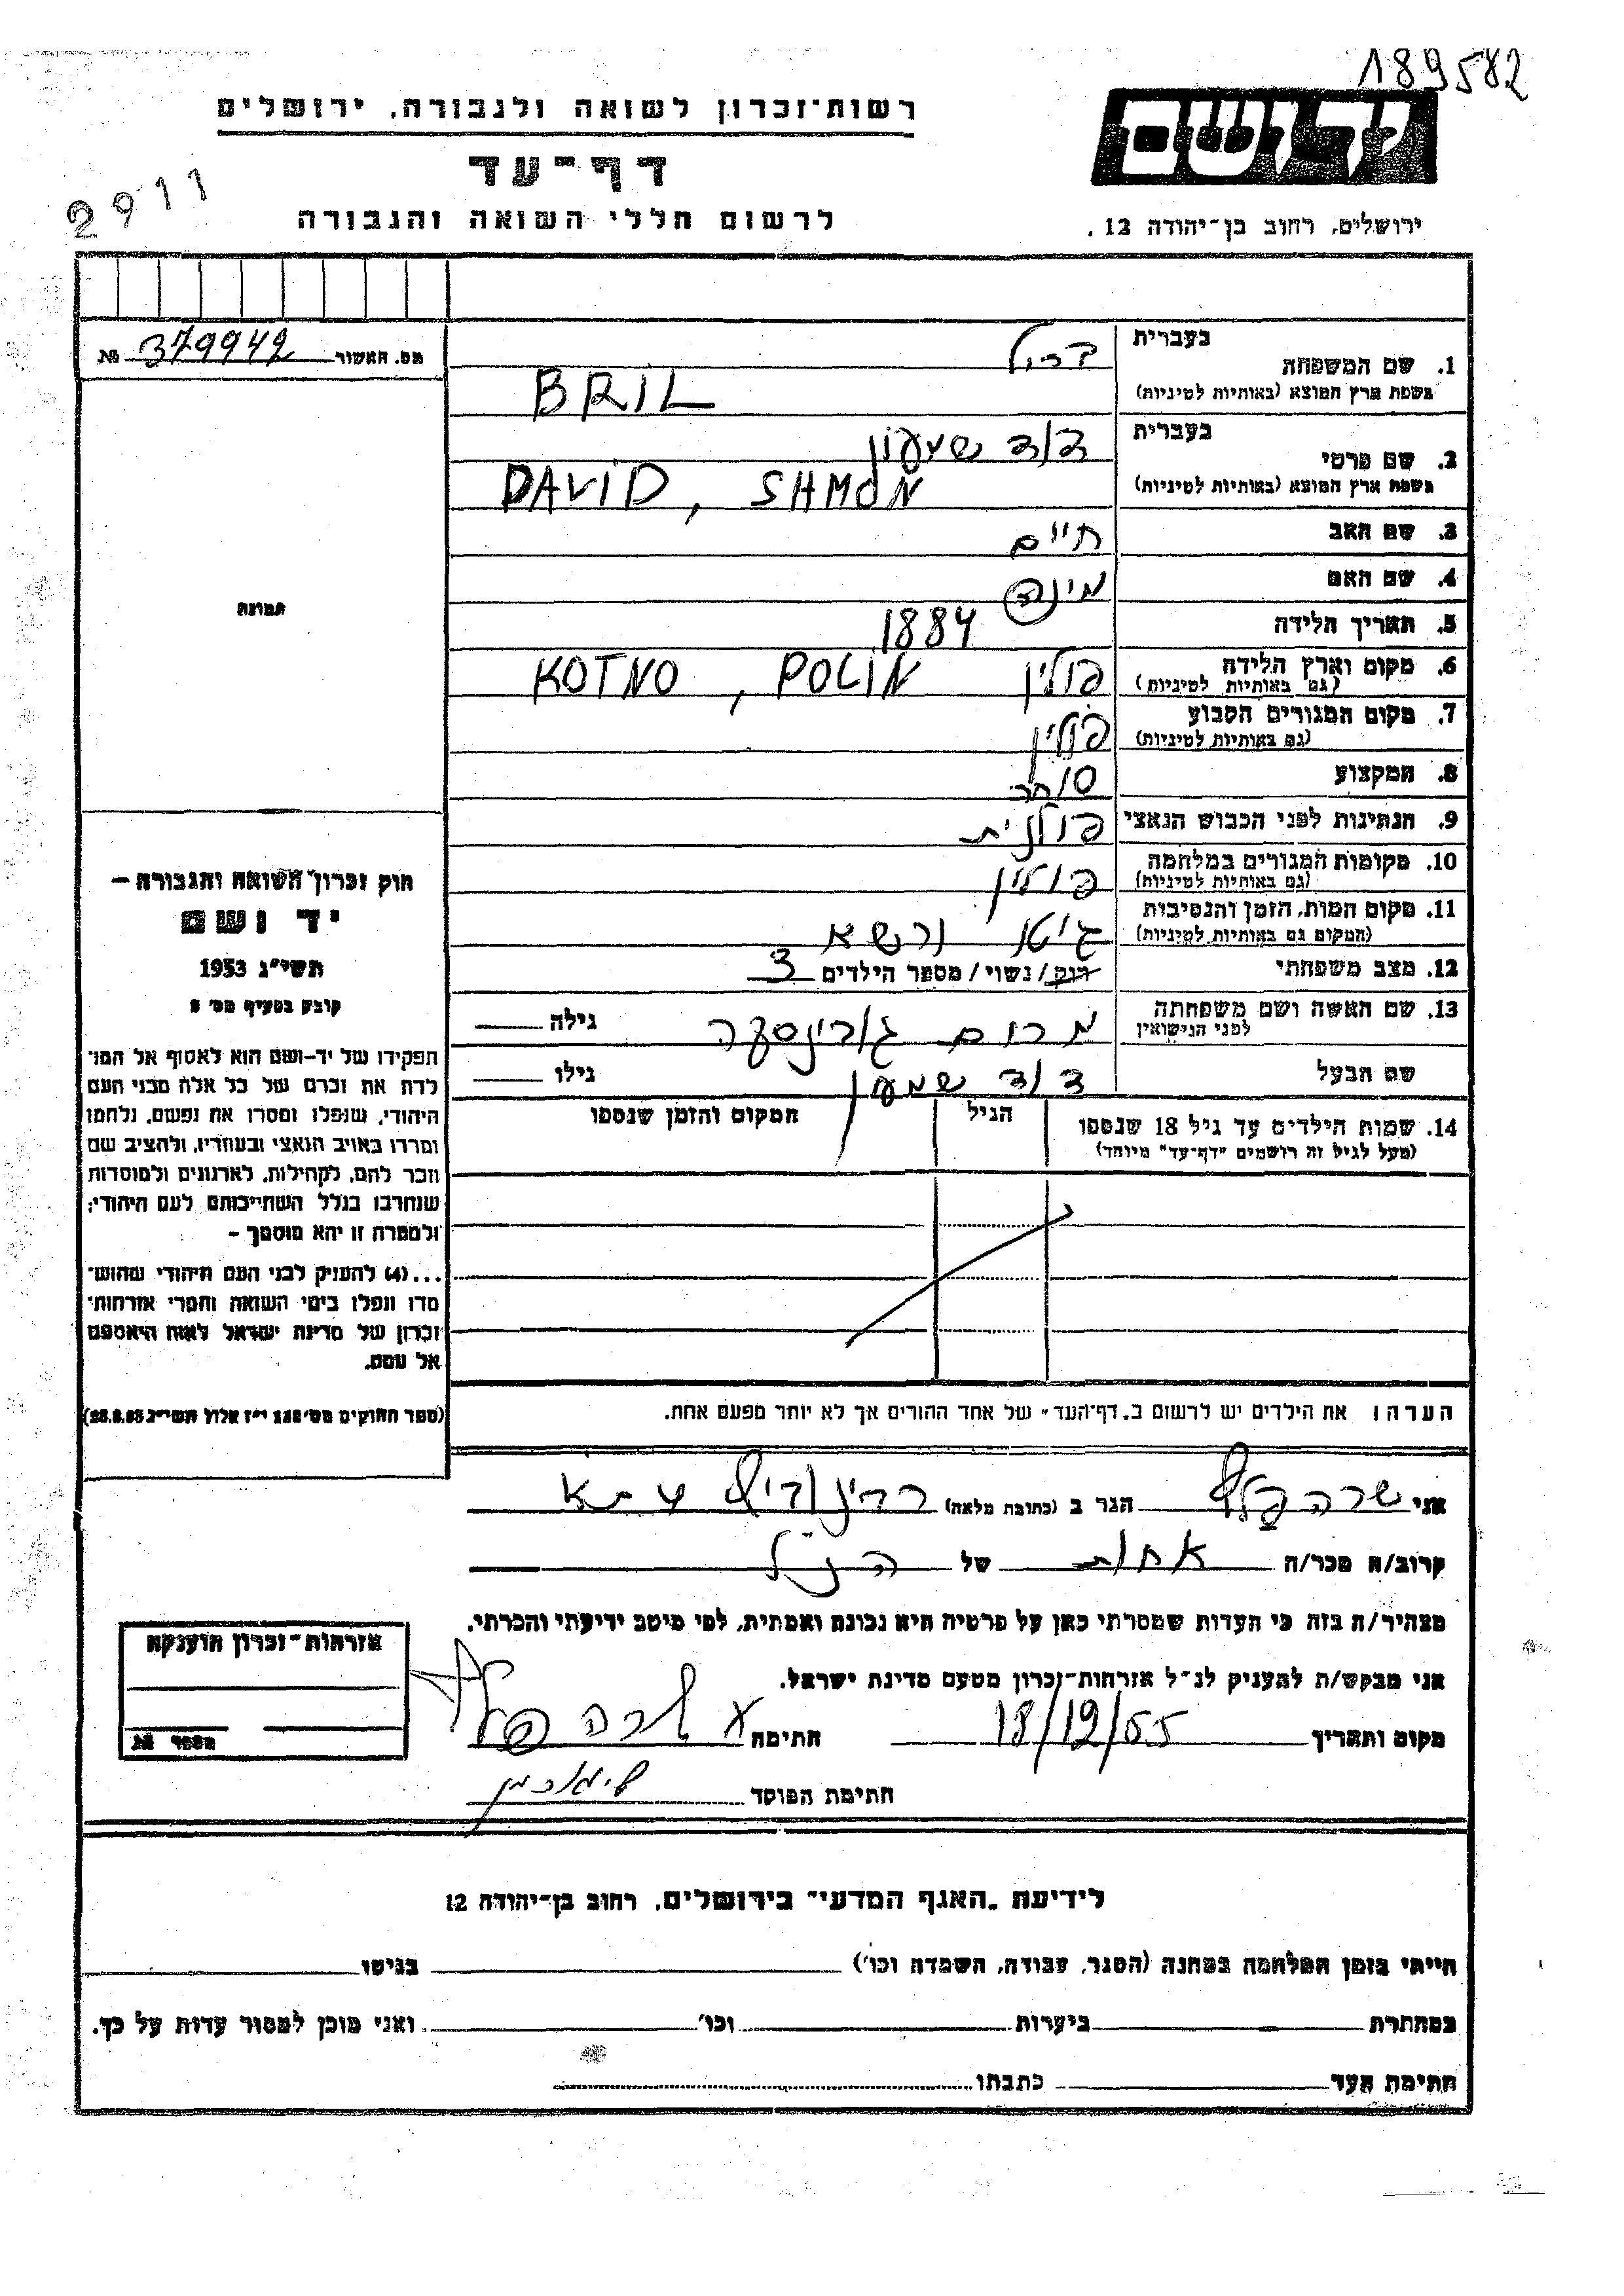 189582
רשות־זכרון לשואה ולגבורה, ירושלים
יד ושם
דף־עד
2911
לרשום חללי השואה והגבורה
ירושלים, רחוב בן־יהודה 12.
מס. האשור 379942 №
בעברית בריל
1. שם המשפחה
בשפת ארץ המוצא (באותיות לטיניות) BRIL
בעברית דוד שמעון
2. שם פרטי
בשפת ארץ המוצא (באותיות לטיניות) DAVID, SHMON
3. שם האב חיים
4. שם האם
5. תאריך הלידה 1884
6. מקום וארץ הלידה פולין KOTNO, POLIN
(גם באותיות לטיניות)
7. מקום המגורים הקבוע פולין
(גם באותיות לטיניות)
8. המקצוע סוחר
9. הנתינות לפני הכבוש הנאצי פולנית
10. מקומות המגורים במלחמה פולין
(גם באותיות לטיניות)
11. מקום המות, הזמן והנסיבות גיטו ורשא
(המקום גם באותיות לטיניות)
12. מצב משפחתי רוק/נשוי/ מספר הילדים 3
13. שם האשה ושם משפחתה מרים גילה
לפני הנישואין
שם הבעל דוד שמעון גילו
14. שמות הילדים עד גיל 18 שנספו הגיל המקום והזמן שנספו
(מעל לגיל זה רושמים "דף־עד" מיוחד)
הערה: את הילדים יש לרשום ב„דף־העד" של אחד ההורים אך לא יותר מפעם אחת.
תמונה
חוק זכרון השואה והגבורה –
יד ושם
תשי"ג 1953
קובע בסעיף מס' 2
תפקידו של יד-ושם הוא לאסוף אל המו־
לדת את זכרם של כל אלה מבני העם
היהודי, שנפלו ומסרו את נפשם, נלחמו
ומרדו באויב הנאצי ובעוזריו, ולהציב שם
וזכר להם, לקהילות, לארגונים ולמוסדות
שנחרבו בגלל השתייכותם לעם היהודי;
ולמטרה זו יהא מוסמך –
...(4) להעניק לבני העם היהודי שהוש־
מדו ונפלו בימי השואה והמרי אזרחות־
זכרון של מדינת ישראל לאות היאספם
אל עמם.
(ספר החוקים מס' 132 י"ז אלול תשי"ג 28.8.53)
אני שרה הגר ב (כתובת מלאה) ת״א
קרוב/ה מכר/ה אחות של הנ״ל
מצהיר/ה בזה כי העדות שמסרתי כאן על פרטיה היא נכונה ואמתית, לפי מיטב ידיעתי והכרתי.
אני מבקש/ת להעניק לנ"ל אזרחות־זכרון מטעם מדינת ישראל.
מקום ותאריך 18/12/55 חתימה שרה
חתימת הפוקד
אזרחות־זכרון הוענקה
מספר №
לידיעת „האגף המדעי" בירושלים, רחוב בן־יהודה 12
הייתי בזמן המלחמה במחנה (הסגר, עבודה, השמדה וכו') בגיטו
במחתרת ביערות וכו' ואני מוכן למסור עדות על כך.
חתימת העד כתבתו